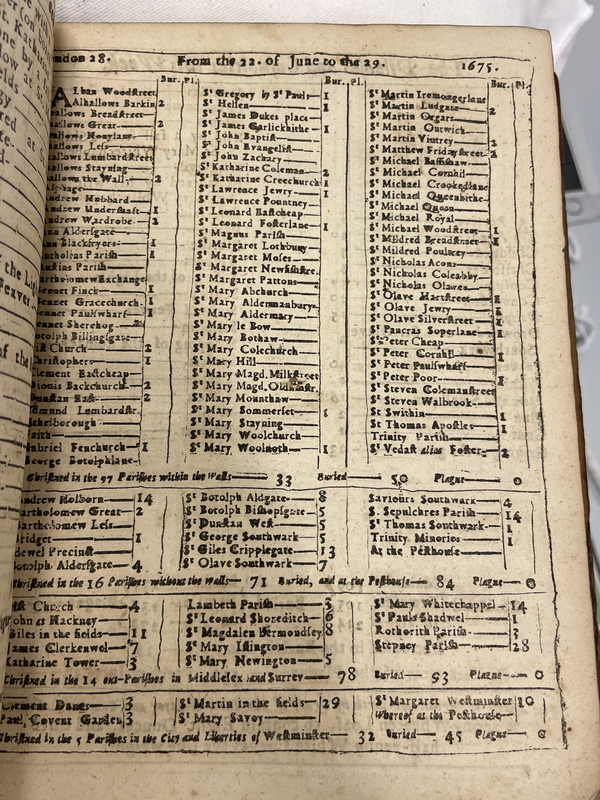 ndon 28. From the 22. of June to the 29. 1675.
Bur. Pl.
Alban Woodstreet
Alhallows Barkin 2
allows Breadstreet
allows Great 2
allows Honylane
allows Less
allows Lumbardstreet
allows Stayning
allows the Wall 2
lphage
ndrew Hubbard
ndrew Undershaft 1
ndrew Wardrobe 2
Aldersgate
Blackfryers 1
tholins Parish 1
ustins Parish
artholomew Exchange
ennet Finck 1
ennet Gracechurch 1
ennet Paulswharf 1
ennet Sherehog
otolph Billingsgate
st Church 2
hristophers 1
lement Eastcheap
ionis Backchurch 2
unstan East 2
dmund Lumbardstr.
thelborough
aith
abriel Fenchurch 1
eorge Botolphlane
Bur. Pl.
St Gregory by St Pauls 1
St Hellen 1
St James Dukes place
St James Garlickhithe 1
St John Baptist
St John Evangelist
St John Zachary
St Katharine Coleman 2
St Katharine Creechurch 1
St Lawrence Jewry 1
St Lawrence Pountney
St Leonard Eastcheap
St Leonard Fosterlane 1
St Magnus Parish
St Margaret Lothbury
St Margaret Moses
St Margaret Newfishstre.
St Margaret Pattons
St Mary Abchurch
St Mary Aldermanbury
St Mary Aldermary
St Mary le Bow
St Mary Bothaw
St Mary Colechurch
St Mary Hill
St Mary Magd. Milkstreet
St Mary Magd. Oldfishstr.
St Mary Mounthaw
St Mary Sommerset 1
St Mary Stayning
St Mary Woolchurch
St Mary Woolnoth 1
Bur. Pl.
St Martin Iremongerlane
St Martin Ludgate 2
St Martin Orgars
St Martin Outwich
St Martin Vintrey 2
St Matthew Fridaystreet 2
St Michael Bassishaw
St Michael Cornhil
St Michael Crookedlane
St Michael Queenhithe
St Michael Quern
St Michael Royal
St Michael Woodstreet 1
St Mildred Breadstreet 1
St Mildred Poultrey
St Nicholas Acons
St Nicholas Coleabby
St Nicholas Olaves
St Olave Hartstreet 1
St Olave Jewry 1
St Olave Silverstreet 1
St Pancras Soperlane 1
St Peter Cheap
St Peter Cornhil 1
St Peter Paulswharf
St Peter Poor 1
St Steven Colemanstreet
St Steven Walbrook
St Swithin 1
St Thomas Apostles 1
Trinity Parish
St Vedast alias Foster 2
Christned in the 97 Parishes within the Walls 33 Buried 50 Plague 0
ndrew Holborn 14
artholomew Great 2
artholomew Less
Bridget 1
idewel Precinct
otolph Aldersgate 4
St Botolph Aldgate 8
St Botolph Bishopsgate 5
St Dunstan West 5
St George Southwark 5
St Giles Cripplegate 13
St Olave Southwark 7
Saviours Southwark 4
S. Sepulchres Parish 14
St Thomas Southwark 1
Trinity Minories 1
At the Pesthouse
Christned in the 16 Parishes without the Walls 71 Buried, and at the Pesthouse 84 Plague 0
ist Church 4
John at Hackney
Giles in the fields 11
James Clerkenwel 7
Katharine Tower 3
Lambeth Parish 3
St Leonard Shoreditch 6
St Magdalen Bermondsey 8
St Mary Islington
St Mary Newington 5
St Mary Whitechappel 14
St Pauls Shadwel 1
Rothorith Parish 3
Stepney Parish 28
Christned in the 14 out-Parishes in Middlesex and Surrey 78 Buried 93 Plague 0
Clement Danes 3
Paul, Covent Garden 3
St Martin in the fields 29
St Mary Savoy
St Margaret Westminster 10
Whereof at the Pesthouse
Christned in the 5 Parishes in the City and Liberties of Westminster 32 Buried 45 Plague 0